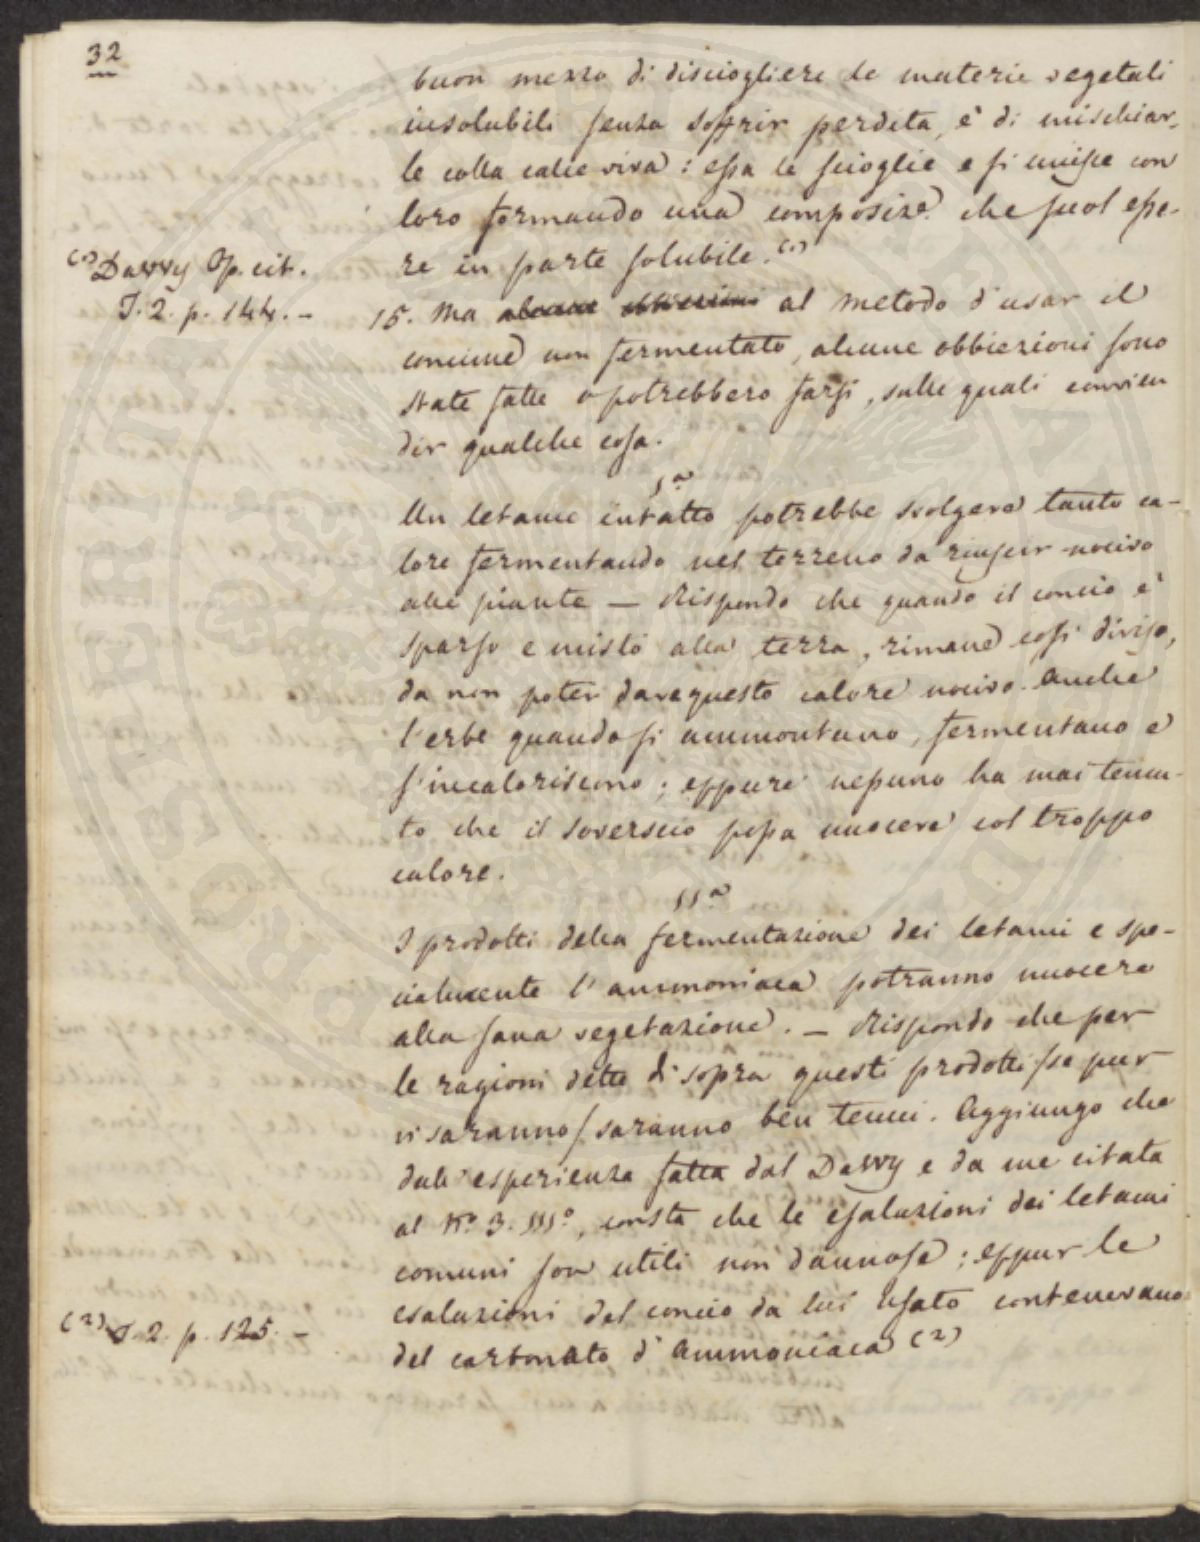 32
buon mezzo di disciogliere le materie vegetali
insolubili senza soffrir perdita, è di mischiar-
le colla calce viva: essa le scioglie e si unisce con
loro formando una composiz.e che suol esse-
re in parte solubile. (1)
(1) Davvy Op. cit.
T. 2. p. 144. -
15. Ma alcune obbiezioni al metodo d'usar il
concime non fermentato, alcune obbiezioni sono
state fatte o potrebbero farsi, sulle quali convien
dir qualche cosa.
1a
Un letame intatto potrebbe svolgere tanto ca-
lore fermentando nel terreno da riuscir nocivo
alle piante — Rispondo che quando il concio è
sparso e misto alla terra, rimane così diviso,
da non poter dare questo calore nocivo. Anche
l'erbe quando si ammontano, fermentano e
s'incaloriscono; eppure nessuno ha mai temu-
to che il soverscio possa nuocere col troppo
calore.
IIa
I prodotti della fermentazione dei letami e spe-
cialmente l'ammoniaca potranno nuocere
alla sana vegetazione. — Rispondo che per
le ragioni dette di sopra questi prodotti /se pur
vi saranno/ saranno ben tenui. Aggiungo che
dall'esperienza fatta dal Davvy e da me citata
al No. 3. IIIo, consta che le esalazioni dei letami
comuni son utili non dannose; eppur le
esalazioni del concio da lui usato contenevano
del carbonato d'Ammoniaca (2)
(2) T. 2. p. 125. -
PROSPERITÀ